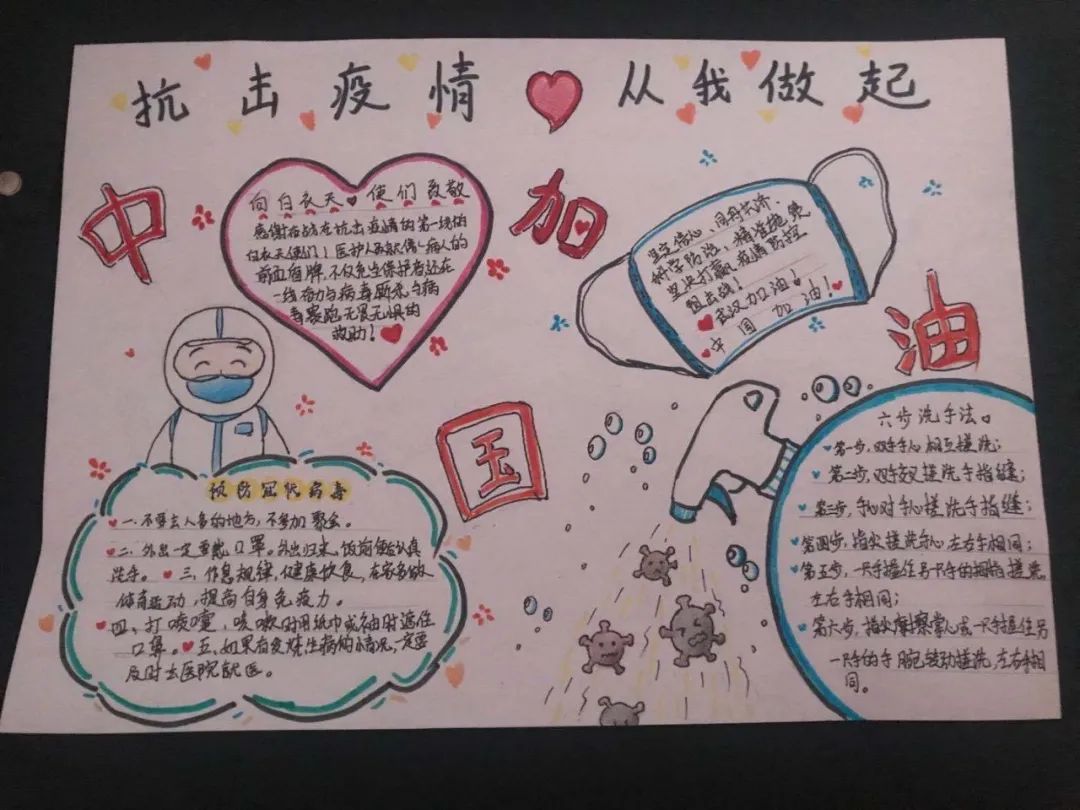 抗击疫情 从我做起
中
国
加
油
向白衣天使们致敬
感谢奋战在抗击疫情的第一线的
白衣天使们！医护人员就像病人的
盾牌，不仅充当保护者还在
一线奋力与病毒厮杀与病
毒赛跑无畏无惧的
救助！
坚定信心、同舟共济、
科学防治、精准施策
坚决打赢疫情防控
阻击战！
武汉加油！
中国加油！
预防冠状病毒
一.不要去人多的地方，不参加聚会。
二.外出一定要戴口罩。外出归来，饭前便后认真
洗手。三.作息规律，健康饮食，在家多做
体育运动，提高自身免疫力。
四、打喷嚏，咳嗽时用纸巾或袖时遮住
口鼻。五.如果有发烧生病的情况，一定要
及时去医院就医。
六步洗手法。
第一步，双手手心相互搓洗；
第二步，双手交叉搓洗手指缝；
第三步，手心对手心搓洗手指缝；
第四步，指尖搓洗手心，左右手相同；
第五步，一只手握住另一只手的拇指搓洗，
左右手相同；
第六步，指尖摩擦掌心或一只手握住另
一只手的手腕转动搓洗，左右手相
同。